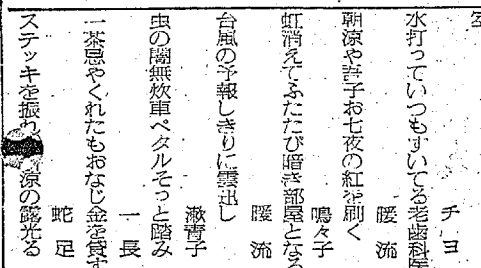 チヨ
水打っていつもすいてる老歯科医
暖流
朝涼や吾子お七夜の紅を刷く
鳴々子
虹消えてふたたび暗き部屋となる
暖流
台風の予報しきりに雲迅し
漱青子
虫の闇無炊車ペタルそっと踏み
一長
一茶忌やくれたもおなじ金を貸す
蛇足
ステッキを振れ 涼の露光る